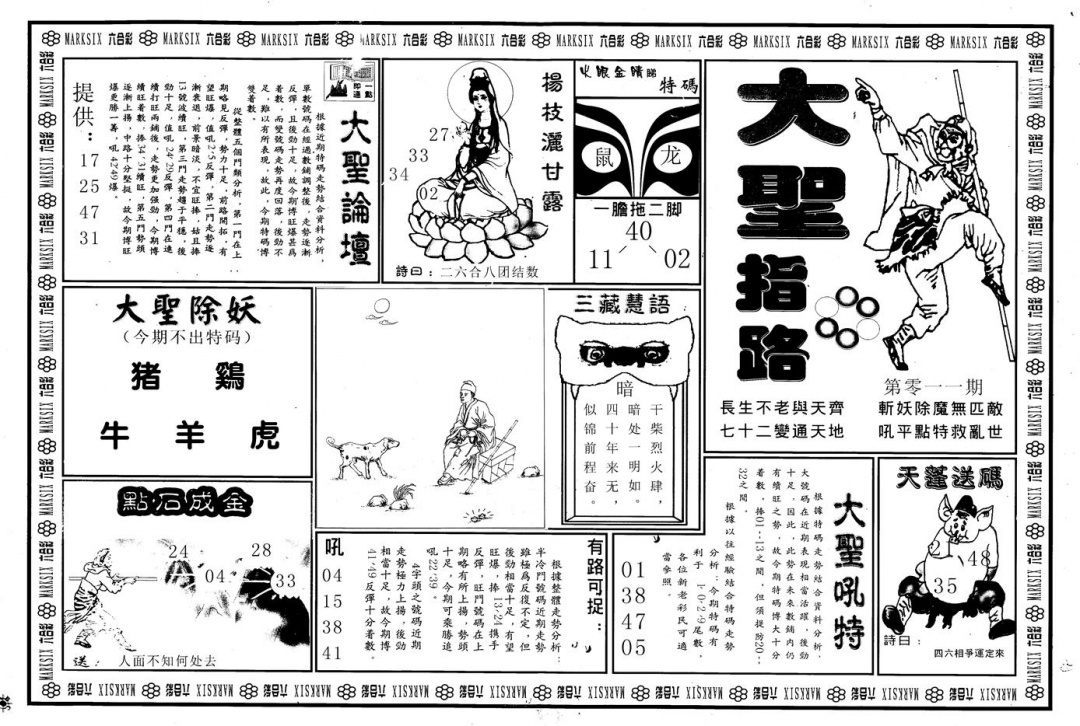 MARKSIX 六合彩 MARKSIX 六合彩 MARKSIX 六合彩 MARKSIX 六合彩 MARKSIX 六合彩 MARKSIX 六合彩 MARKSIX 六合彩 MARKSIX 六合彩 MARKSIX 六合彩 MARKSIX 六合彩
大聖指路
第零一一期
長生不老與天齊
斬妖除魔無匹敵
七十二變通天地
吼平點特救亂世
火眼金睛睇
特碼
鼠
龙
一膽拖二脚
40
11
02
楊枝灑甘露
27
33
34
02
詩曰：二六合八团结数
一點即通
大聖論壇
根據近期特碼走勢結合資料分析，
單數號碼在經過數鋪調整後，走勢逐漸
反彈，且後勁十足，故今期博旺爆甚爲
着數，而變號碼走勢再度回落，後勁不
足，雖以有所表現，故此，今期特碼博
雙着數。
從整體五個門類分析，第一門在上
期略見反彈，勢力十足，前路開拓，有
望旺爆，值吼2.5反彈，第二門走勢逐
漸衰退，前景暗淡，不宜旺捧，姑且捧
13號波續旺，第三門走勢趨于平穩，後
勁十足，值吼24.29反彈，第四門在連
續打旺兩鋪後，走勢更加强勁，今期博
續旺着數，捧34.31續旺，第五門勢頭
逐漸上揚，中路十分堅挺，故今期博旺
爆更勝一籌，吼42.49爆。
提供：
17
25
47
31
大聖除妖
（今期不出特码）
猪 鷄
牛 羊 虎
三藏慧語
暗
干柴烈火肆，
暗处一明如。
四十年来无，
似锦前程奋。
點石成金
24
28
04
33
送：人面不知何处去
有路可捉：
根據整體走勢分析：
半冷門號碼近期走勢
雖極爲反復不定，但
後勁相當十足，有望
旺爆，捧13.24携手
反彈，旺門號碼在上
期略有所上揚，勢頭
十足，今期可乘勝追
吼22.39。
4字頭之號碼近期
走勢極力上揚，後勁
相當十足，故今期博
41.49反彈十分着數。
吼
04
15
38
41
大聖吼特
根據特碼走勢結合資料分析，
大號碼在近期表現相當活躍，後勁
十足，因此，此勢在未來數鋪内仍
有續旺之勢，故今期特碼博大十分
着數，捧01-13之間，但須提防20-
32之間。
根據以往經驗結合特碼走勢
分析：今期特碼有
利于 1.0.2.9尾數。
各位新老彩民可適
當參照。
01
38
47
05
天蓬送碼
48
35
詩曰：
四六相爭運定來